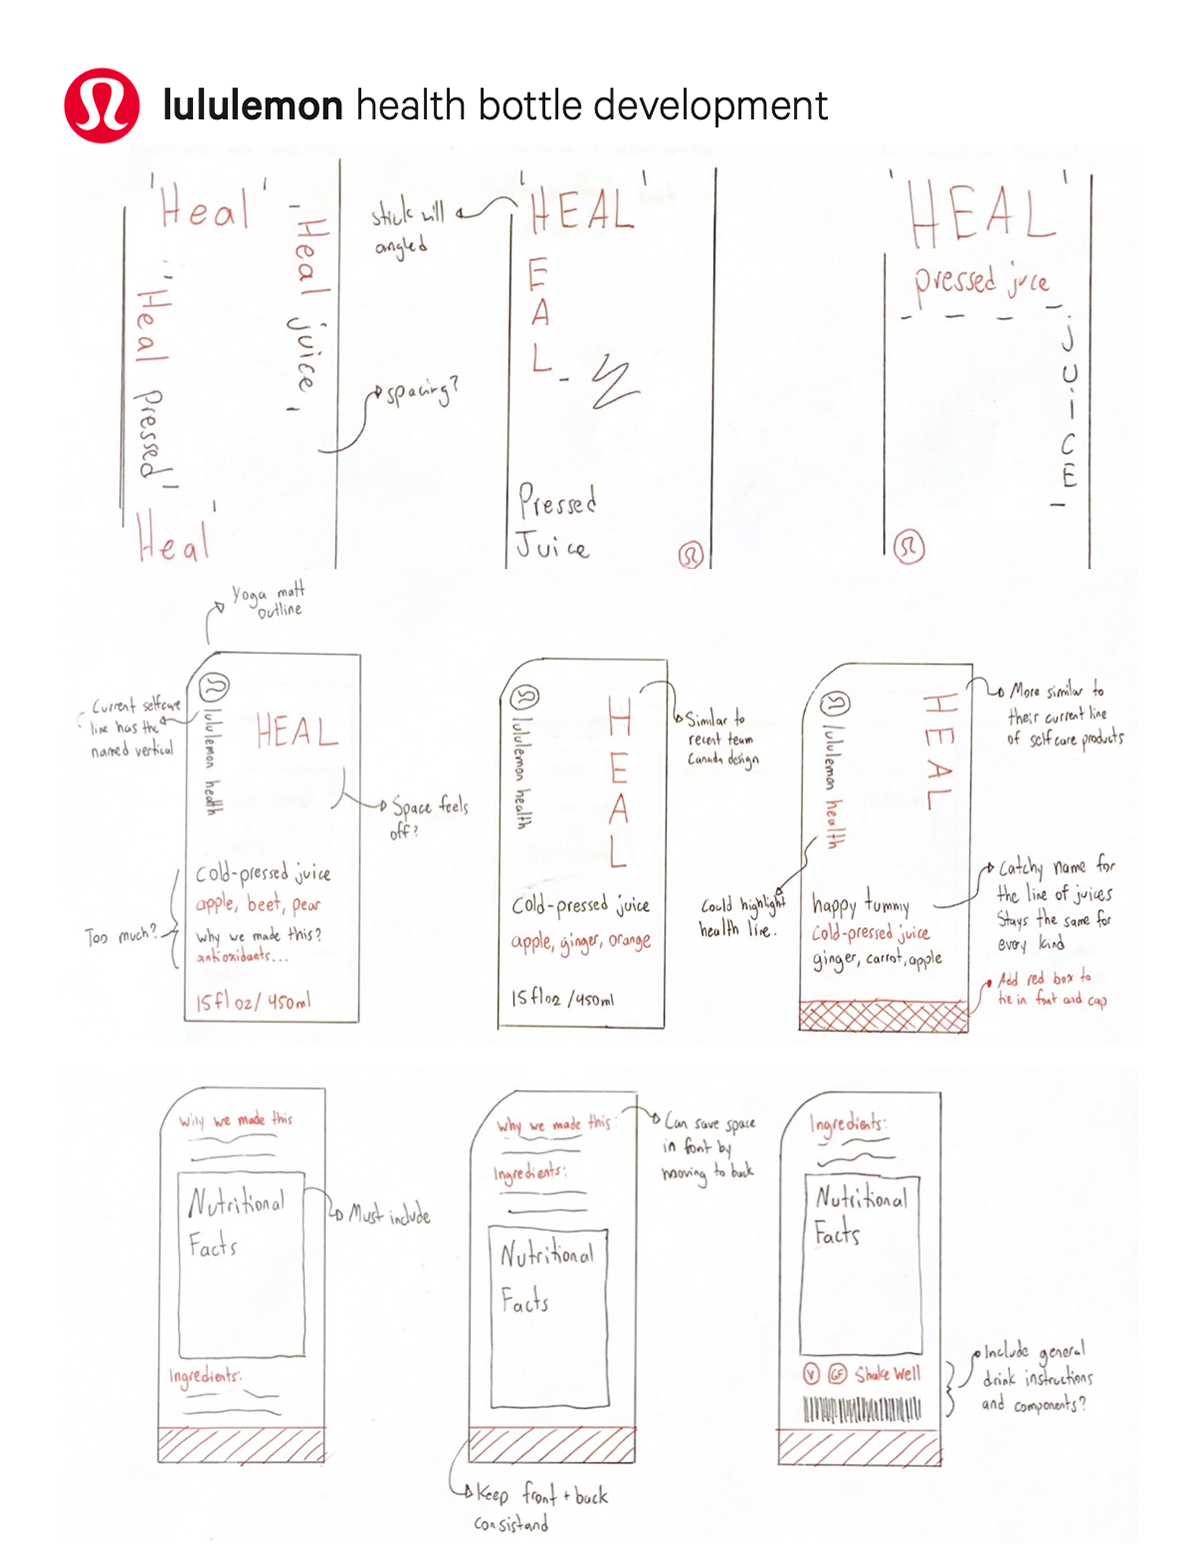 lululemon health bottle development
'Heal'
"Heal pressed"
Heal'
-Heal juice,-
spacing?
stick will
angled
'HEAL'
E
A
L-
Pressed
Juice
'HEAL'
pressed juce
JUiCE-
Yoga matt
outline
Current selfcare
line has the
named vertical
lululemon health
HEAL
Space feels
off?
Too much?
Cold-pressed juice
apple, beet, pear
why we made this?
antioxidants...
15fl oz/450ml
lululemon health
HEAL
Similar to
recent team
Canada design
Cold-pressed juice
apple, ginger, orange
15floz/450ml
lululemon health
HEAL
More similar to
their current line
of selfcare products
Could highlight
health line.
happy tummy
Cold-pressed juice
ginger, carrot, apple
Catchy name for
the line of juices
Stays the same for
every kind
Add red box to
tie in font and cap
Why we made this
Nutritional
Facts
Must include
Ingredients:
Why we made this:
Ingredients:
Nutritional
Facts
Can save space
in font by
moving to back
Keep front + back
consistand
Ingredients:
Nutritional
Facts
V GF Shake Well
Include general
drink instructions
and components?